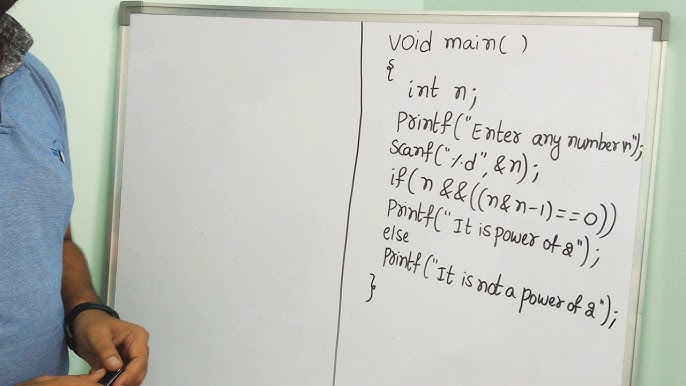 void main( )
{
int n;
Printf("Enter any number\n");
Scanf("%d", &n);
if(n &&((n&n-1)==0))
Printf("It is power of 2");
else
Printf("It is not a power of 2");
}